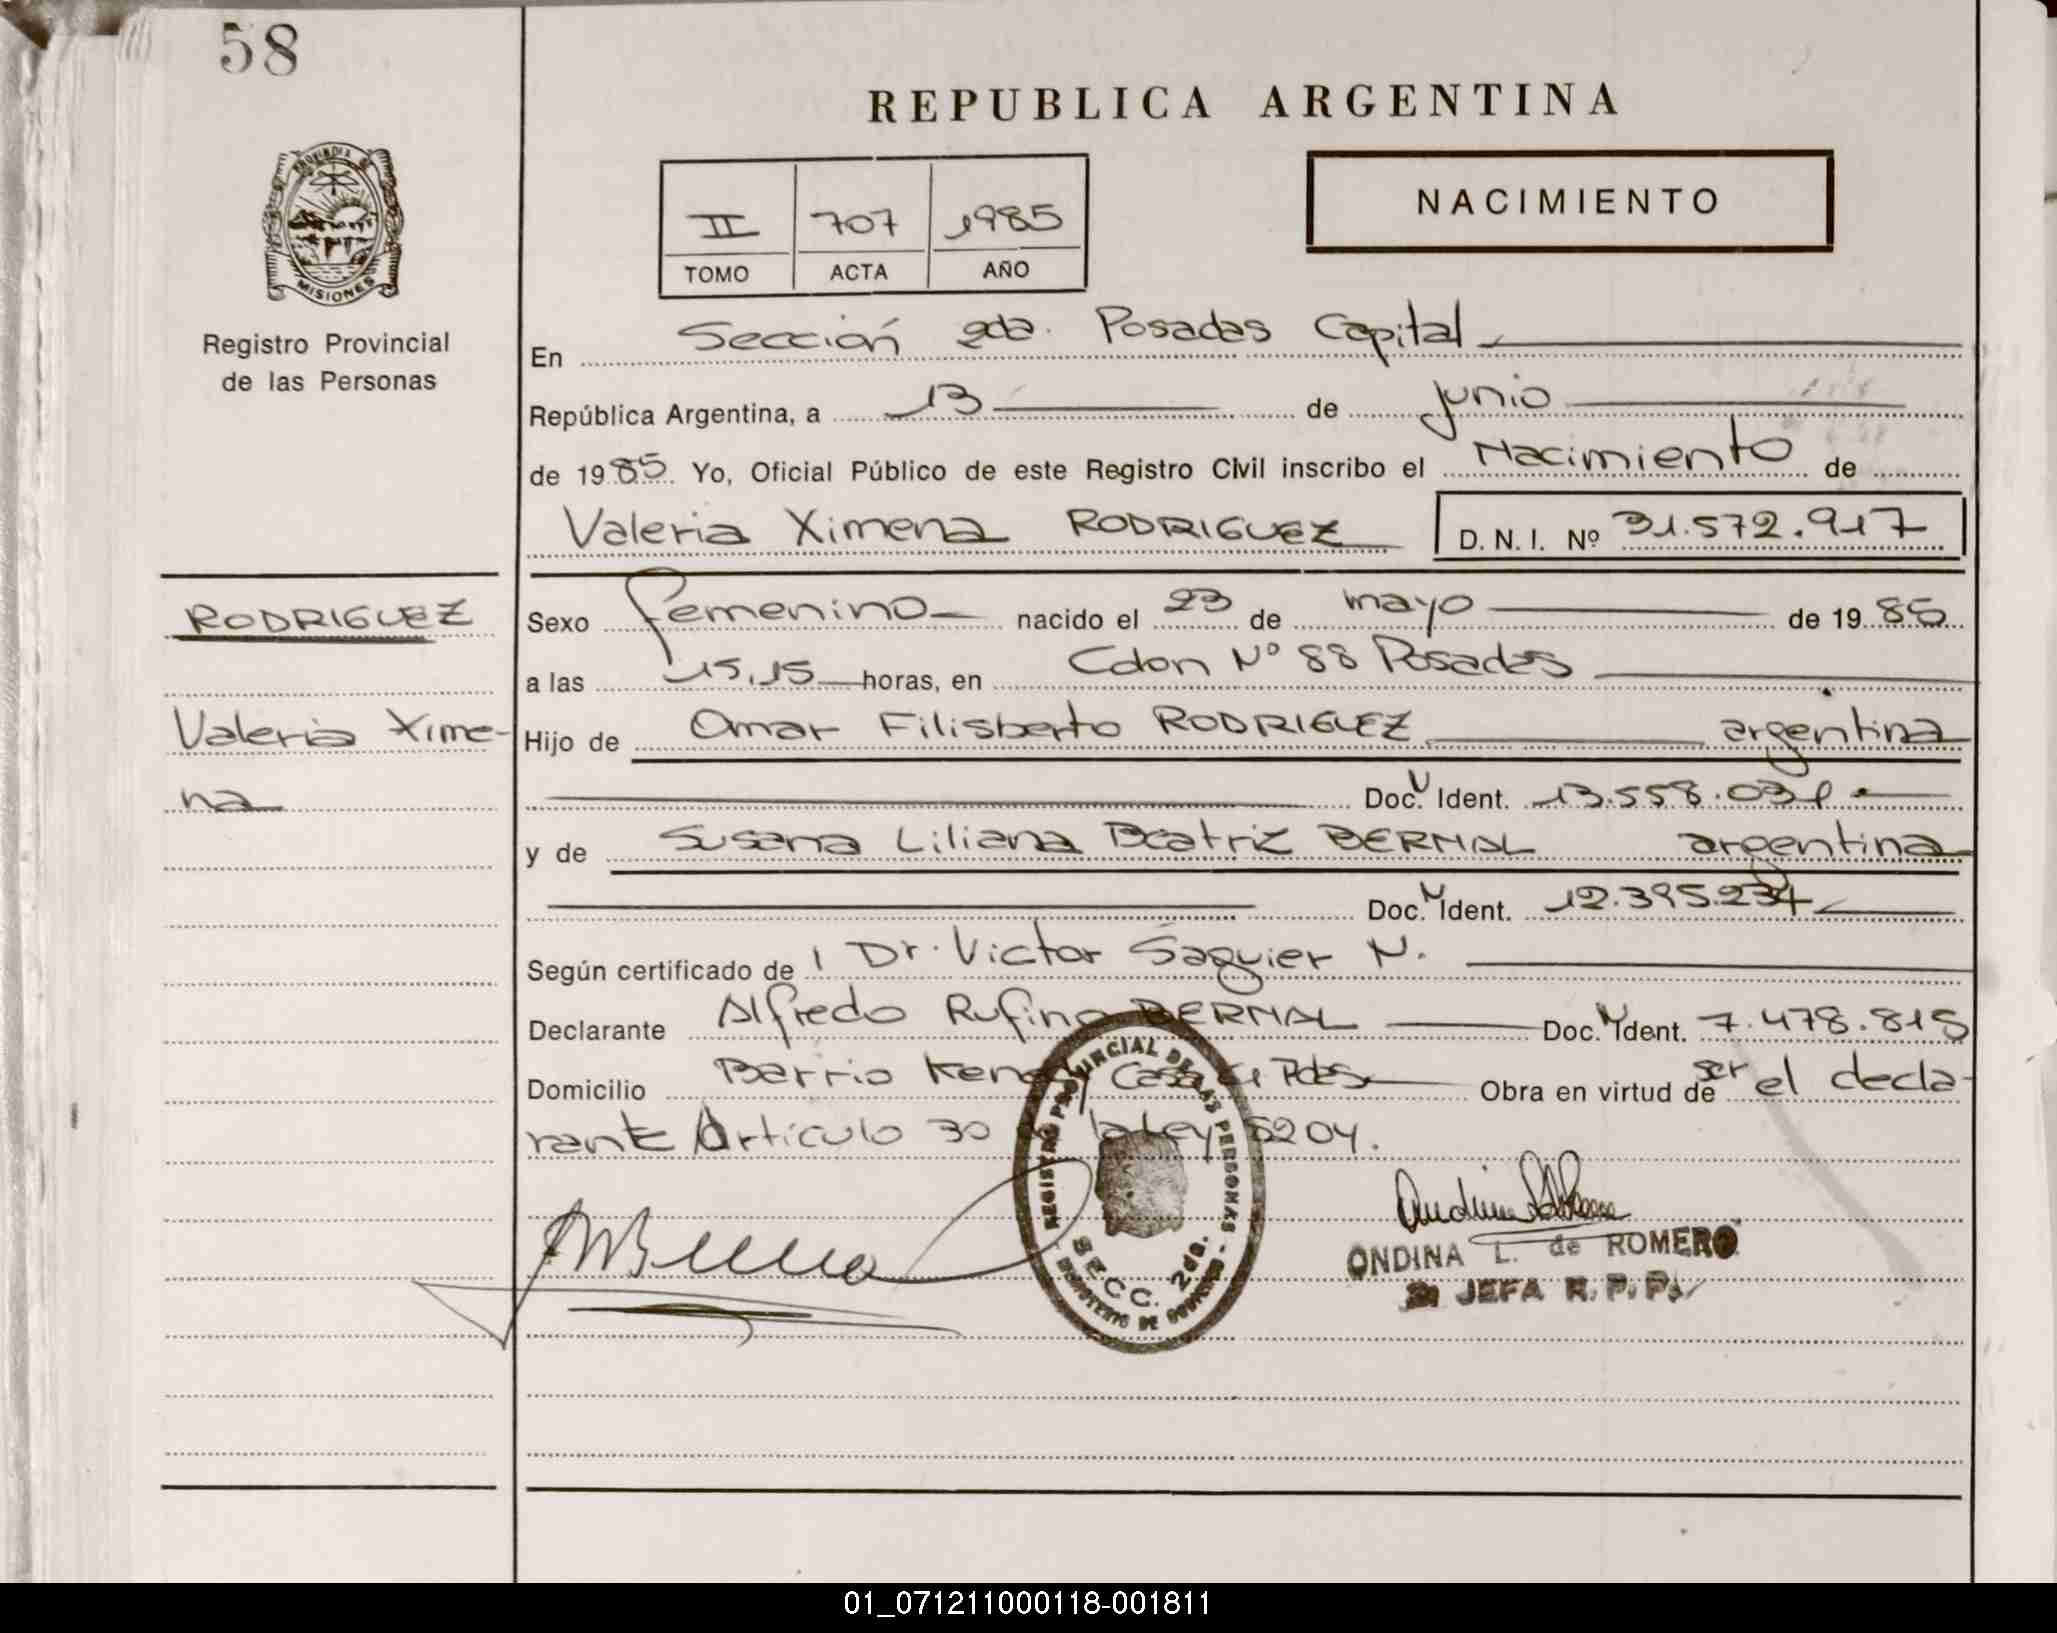 58
REPUBLICA ARGENTINA
PROVINCIA DE
MISIONES
Registro Provincial
de las Personas
II 707 1985
TOMO ACTA AÑO
NACIMIENTO
En Sección 2da. Posadas Capital
República Argentina, a 13 de junio
de 1985. Yo, Oficial Público de este Registro Civil inscribo el Nacimiento de
Valeria Ximena RODRIGUEZ D. N. I. Nº 31.572.917
RODRIGUEZ
Valeria Xime-
na
Sexo femenino nacido el 23 de mayo de 1985
a las 15,15 horas, en Colon Nº 88 Posadas
Hijo de Omar Filisberto RODRIGUEZ argentina
Doc. N Ident. 13.558.031
y de Susana Liliana Beatriz BERNAL argentina
Doc. N Ident. 12.395.234
Según certificado de Dr. Victor Saguier N.
Declarante Alfredo Rufino BERNAL Doc. N Ident. 7.478.815
Domicilio Barrio Kenedy Casa Pdas Obra en virtud de ser el decla-
rante Artículo 30 la Ley 5204.
REGISTRO PROVINCIAL DE LAS PERSONAS
SECC. 2da.
MINISTERIO DE GOBIERNO
ONDINA L. de ROMERO
JEFA R. P. P.
01_071211000118-001811